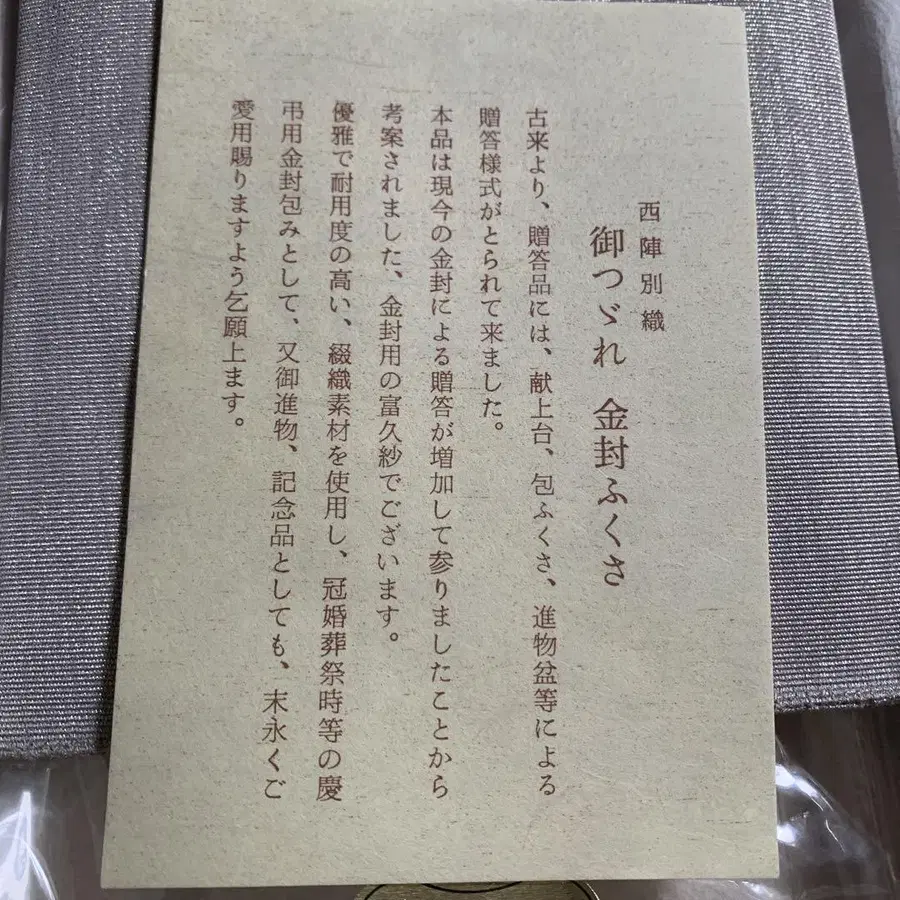 西陣別織
御つゞれ 金封ふくさ
古来より、贈答品には、献上台、包ふくさ、進物盆等による
贈答様式がとられて来ました。
本品は現今の金封による贈答が増加して参りましたことから
考案されました、金封用の富久紗でございます。
優雅で耐用度の高い、綴織素材を使用し、冠婚葬祭時等の慶
弔用金封包みとして、又御進物、記念品としても、末永くご
愛用賜りますよう乞願上ます。